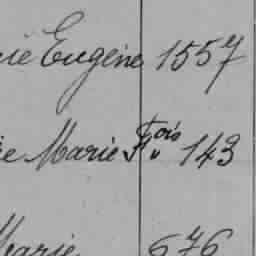 Eugène 1557
Marie Fois 143
Marie 676